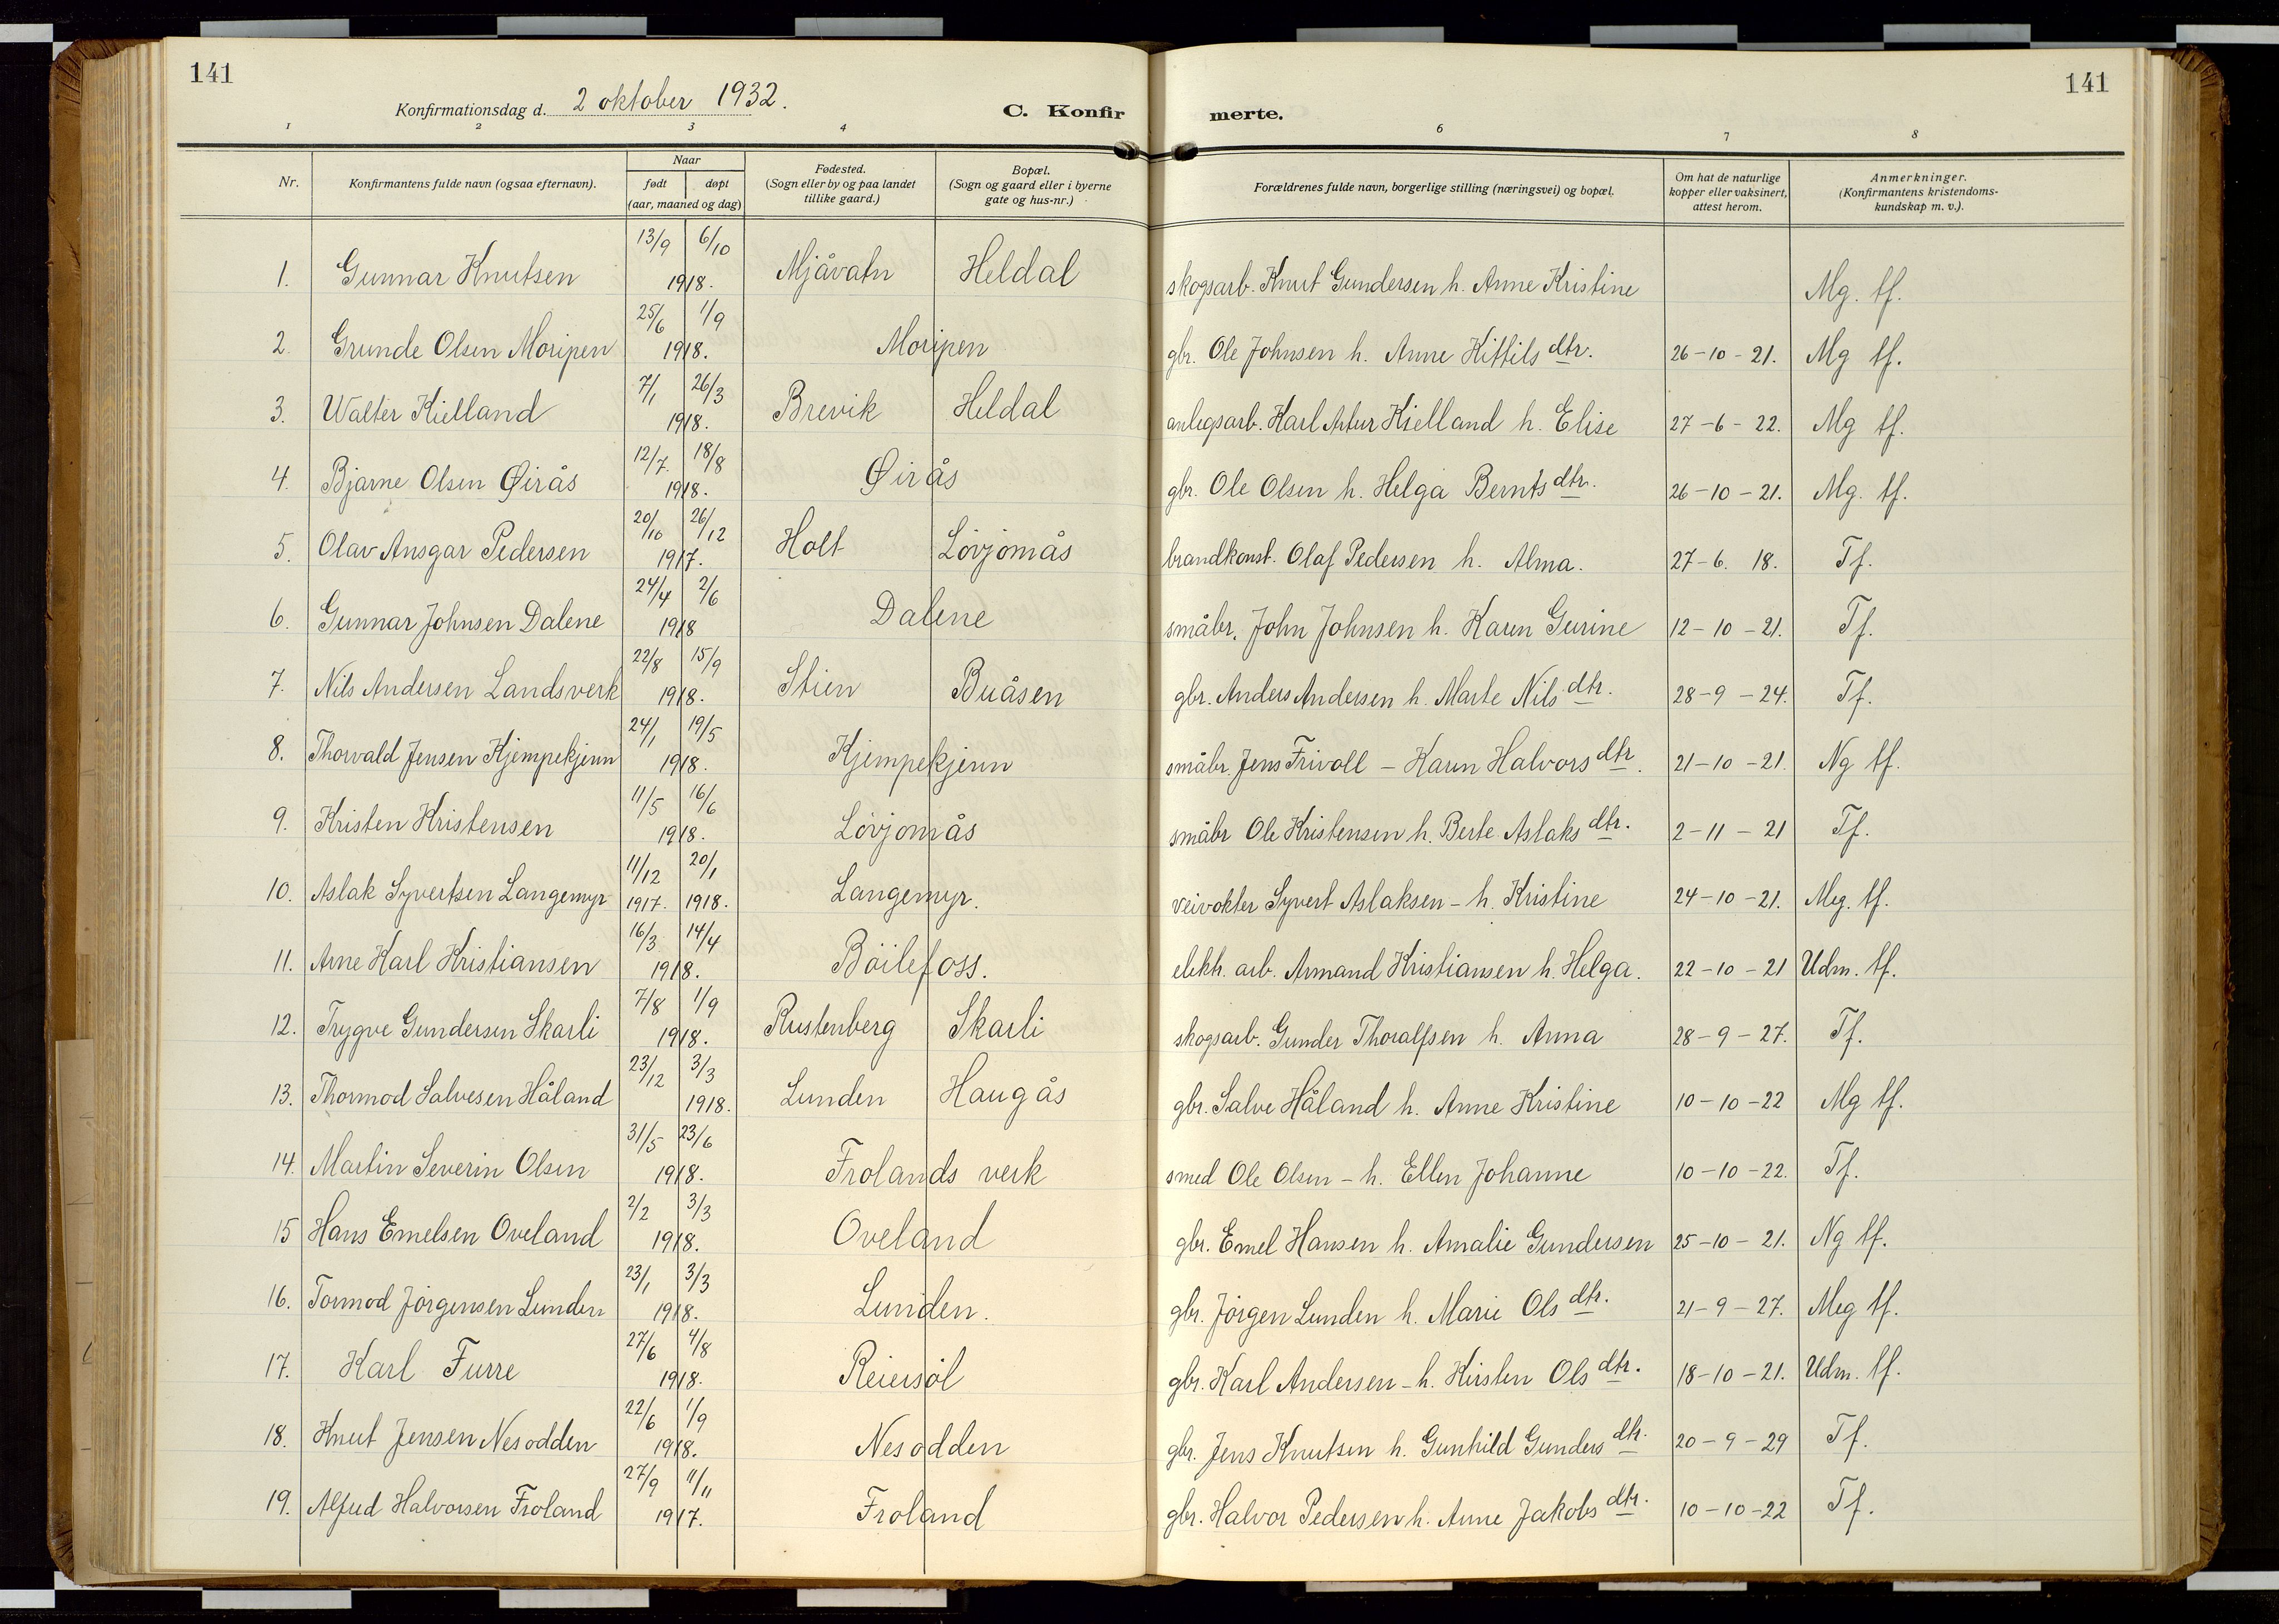 141
141
Konfirmationsdag d. 2 oktober 1932.
C. Konfirmerte.
1 2 3 4 6 7 8
Nr. | Konfirmantens fulde navn (ogsaa efternavn). | Naar født døpt (aar, maaned og dag) | Fødested. (Sogn eller by og paa landet tillike gaard.) | Bopæl. (Sogn og gaard eller i byerne gate og hus-nr.) | Forældrenes fulde navn, borgerlige stilling (næringsvei) og bopæl. | Om hat de naturlige kopper eller vaksinert, attest herom. | Anmerkninger. (Konfirmantens kristendoms-kundskap m. v.).
1. Gunnar Knutsen 13/9 6/10 1918. Mjåvatn Heldal skogsarb. Knut Gundersen h. Anne Kristine Mg. tf.
2. Grunde Olsen Moripen 25/6 1/9 1918. Moripen gbr. Ole Johnsen h. Anne Kittils dtr. 26-10-21. Mg tf.
3. Walter Kielland 7/1 26/3 1918. Brevik Heldal anlegsarb. Karl Artur Kielland h. Elise 27-6-22. Mg tf.
4. Bjarne Olsen Øirås 12/7. 18/8 1918. Øirås gbr. Ole Olsen h. Helga Bernts dtr. 26-10-21. Mg. tf.
5. Olav Ansgar Pedersen 20/10 26/12 1917. Holt Lövjomås brandkonst. Olaf Pedersen h. Alma. 27-6. 18. Tf.
6. Gunnar Johnsen Dalene 24/4 2/6 1918 Dalene småbr. John Johnsen h. Karen Gurine 12-10-21. Tf.
7. Nils Andersen Landsverk 22/8 15/9 1918. Stien Buåsen gbr. Anders Andersen h. Marte Nils dtr. 28-9-24. Tf.
8. Thorvald Jensen Kjempekjenn 24/1 19/5 1918. Kjempekjenn småbr. Jens Frivoll - Karen Halvors dtr. 21-10-21. Ng tf.
9. Kristen Kristensen 11/5 16/6 1918. Lövjomås småbr Ole Kristensen h. Berte Aslaks dtr. 2-11-21 Tf.
10. Aslak Syvertsen Langemyr 11/12 1917. 20/1 1918. Langemyr. veivokter Syvert Aslaksen - h. Kristine 24-10-21. Meg. tf.
11. Arne Karl Kristiansen 16/3 14/4 1918. Böilefoss. elektr. arb. Armand Kristiansen h. Helga. 22-10-21 Udm. tf.
12. Trygve Gundersen Skarli 7/8 1/9 1918. Rustenberg Skarli skogsarb. Gunder Thoralfsen h. Anna 28-9-27. Tf.
13. Thormod Salvesen Håland 23/12 3/3 1918. Lunden Haugås gbr. Salve Håland h. Anne Kristine 10-10-22 Mg tf.
14. Martin Severin Olsen 31/5 23/6 1918. Frolands verk smed Ole Olsen - h. Ellen Johanne 10-10-22. Tf.
15 Hans Emelsen Oveland 2/2 3/3 1918. Oveland gbr. Emel Hansen h. Amalie Gundersen 25-10-21. Ng tf.
16. Tormod Jörgensen Lunden 23/1 3/3 1918. Lunden. gbr. Jörgen Lunden h. Marie Ols dtr. 21-9-27. Meg tf.
17. Karl Furre 27/6 4/8 1918. Reiersöl gbr. Karl Andersen - h. Kirsten Ols dtr. 18-10-21. Udm. tf.
18. Knut Jensen Nesodden 22/6 1/9 1918. Nesodden gbr. Jens Knutsen h. Gunhild Gunders dtr. 20-9-29 Tf.
19. Alfred Halvorsen Froland 27/9 11/11 1917. Froland gbr. Halvor Pedersen h. Anne Jakobs dtr. 10-10-22 Tf.